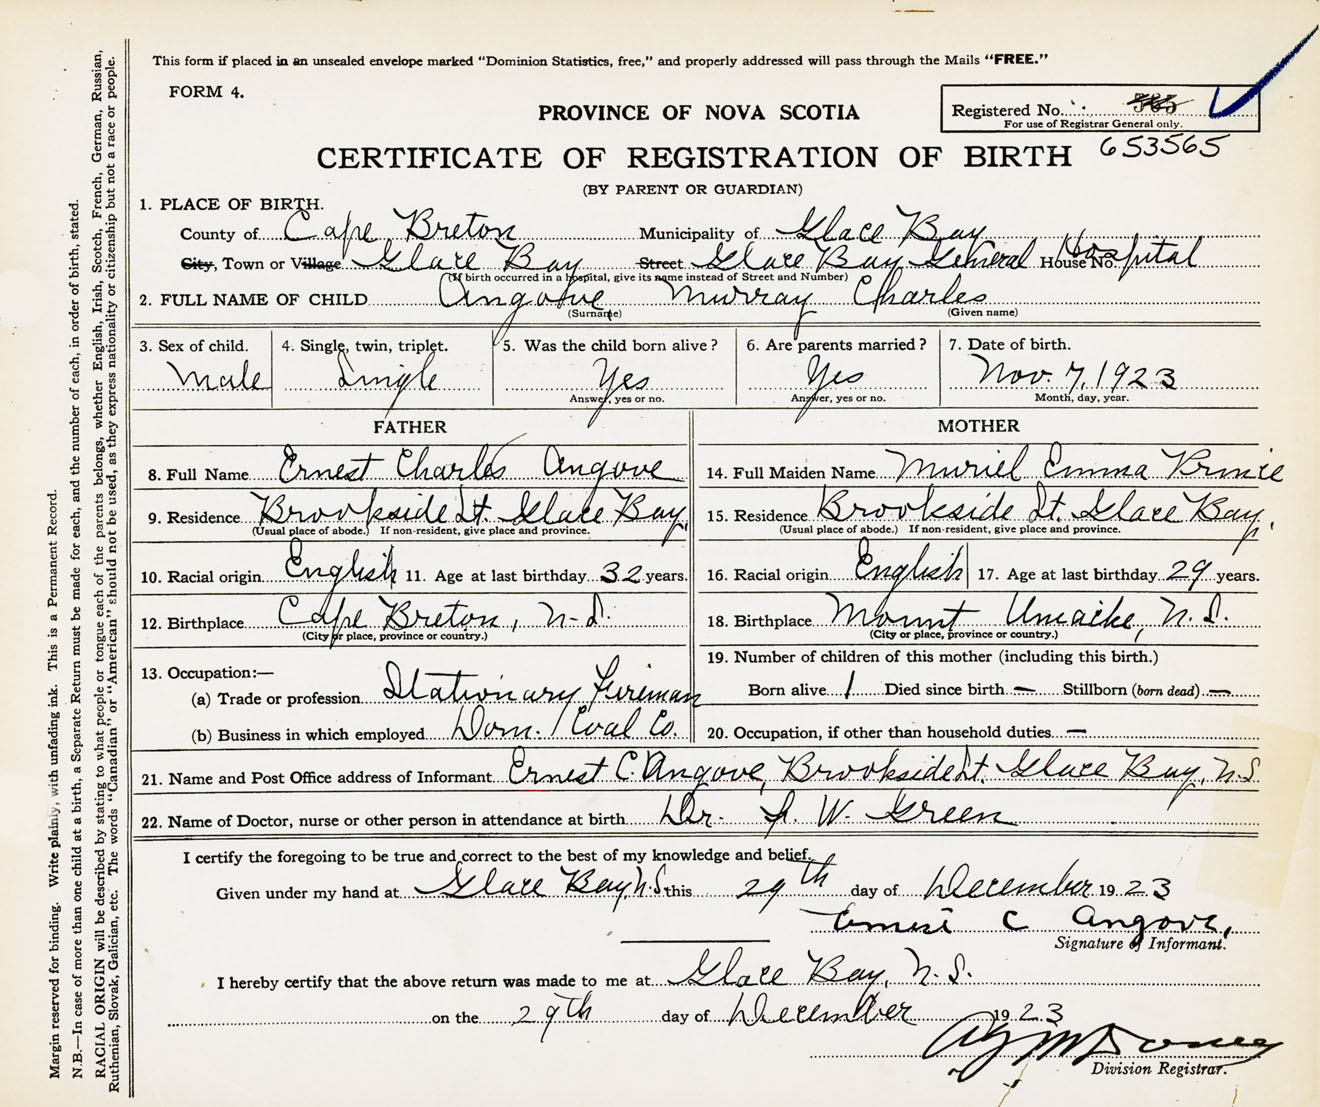 This form if placed in an unsealed envelope marked “Dominion Statistics, free,” and properly addressed will pass through the Mails “FREE.”
FORM 4.
PROVINCE OF NOVA SCOTIA
Registered No.
For use of Registrar General only.
653565
CERTIFICATE OF REGISTRATION OF BIRTH
(BY PARENT OR GUARDIAN)
1. PLACE OF BIRTH.
County of Cape Breton Municipality of Glace Bay
City, Town or Village Glace Bay Street Glace Bay General Hospital House No.
(If birth occurred in a hospital, give its name instead of Street and Number)
2. FULL NAME OF CHILD Angove Murray Charles
(Surname) (Given name)
3. Sex of child. 4. Single, twin, triplet. 5. Was the child born alive? 6. Are parents married? 7. Date of birth.
Male Single Yes Yes Nov. 7, 1923
Answer, yes or no. Answer, yes or no. Month, day, year.
FATHER MOTHER
8. Full Name Ernest Charles Angove 14. Full Maiden Name Muriel Emma Prince
9. Residence Brookside St. Glace Bay. 15. Residence Brookside St. Glace Bay.
(Usual place of abode.) If non-resident, give place and province. (Usual place of abode.) If non-resident, give place and province.
10. Racial origin English 11. Age at last birthday 32 years. 16. Racial origin English 17. Age at last birthday 29 years.
12. Birthplace Cape Breton, N.S. 18. Birthplace Mount Uniacke, N.S.
(City or place, province or country.) (City or place, province or country.)
13. Occupation:— 19. Number of children of this mother (including this birth.)
(a) Trade or profession Stationary Fireman Born alive 1 Died since birth — Stillborn (born dead) —
(b) Business in which employed Dom. Coal Co. 20. Occupation, if other than household duties —
21. Name and Post Office address of Informant Ernest C. Angove, Brookside St. Glace Bay, N.S.
22. Name of Doctor, nurse or other person in attendance at birth Dr. W. Green
I certify the foregoing to be true and correct to the best of my knowledge and belief.
Given under my hand at Glace Bay, N.S. this 29th day of December 1923
Ernest C Angove,
Signature of Informant.
I hereby certify that the above return was made to me at Glace Bay, N.S.
on the 29th day of December 1923
Division Registrar.
Margin reserved for binding. Write plainly, with unfading ink. This is a Permanent Record.
N.B.—In case of more than one child at a birth, a Separate Return must be made for each, and the number of each, in order of birth, stated.
RACIAL ORIGIN will be described by stating to what people or tongue each of the parents belongs, whether English, Irish, Scotch, French, German, Russian,
Ruthenian, Slovak, Galician, etc. The words “Canadian” or “American” should not be used, as they express nationality or citizenship but not a race or people.